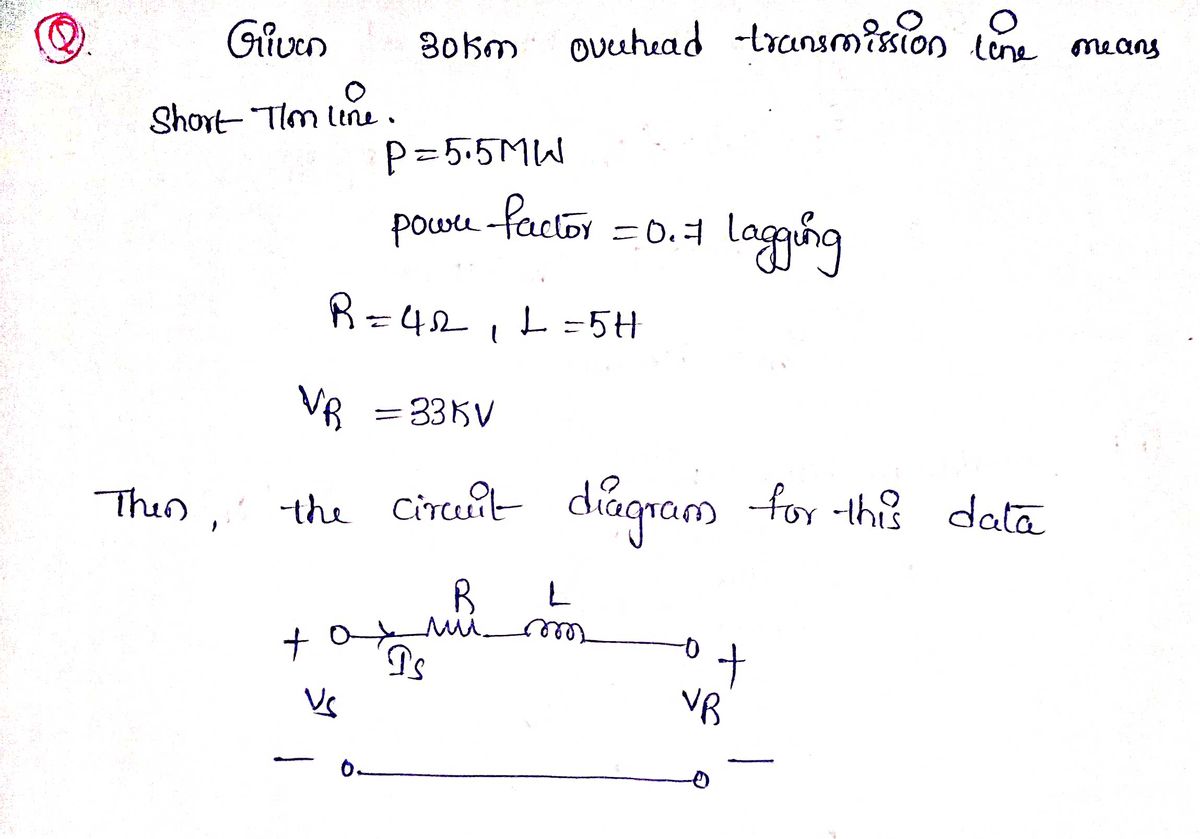 Q.
Given 30Km overhead transmission line means
Short Tlm line.
P=5.5MW
power factor =0.7 lagging
R=4Ω , L =5H
VR =33KV
Then, the circuit diagram for this data
R L
+ +
Is
Vs VR
– –